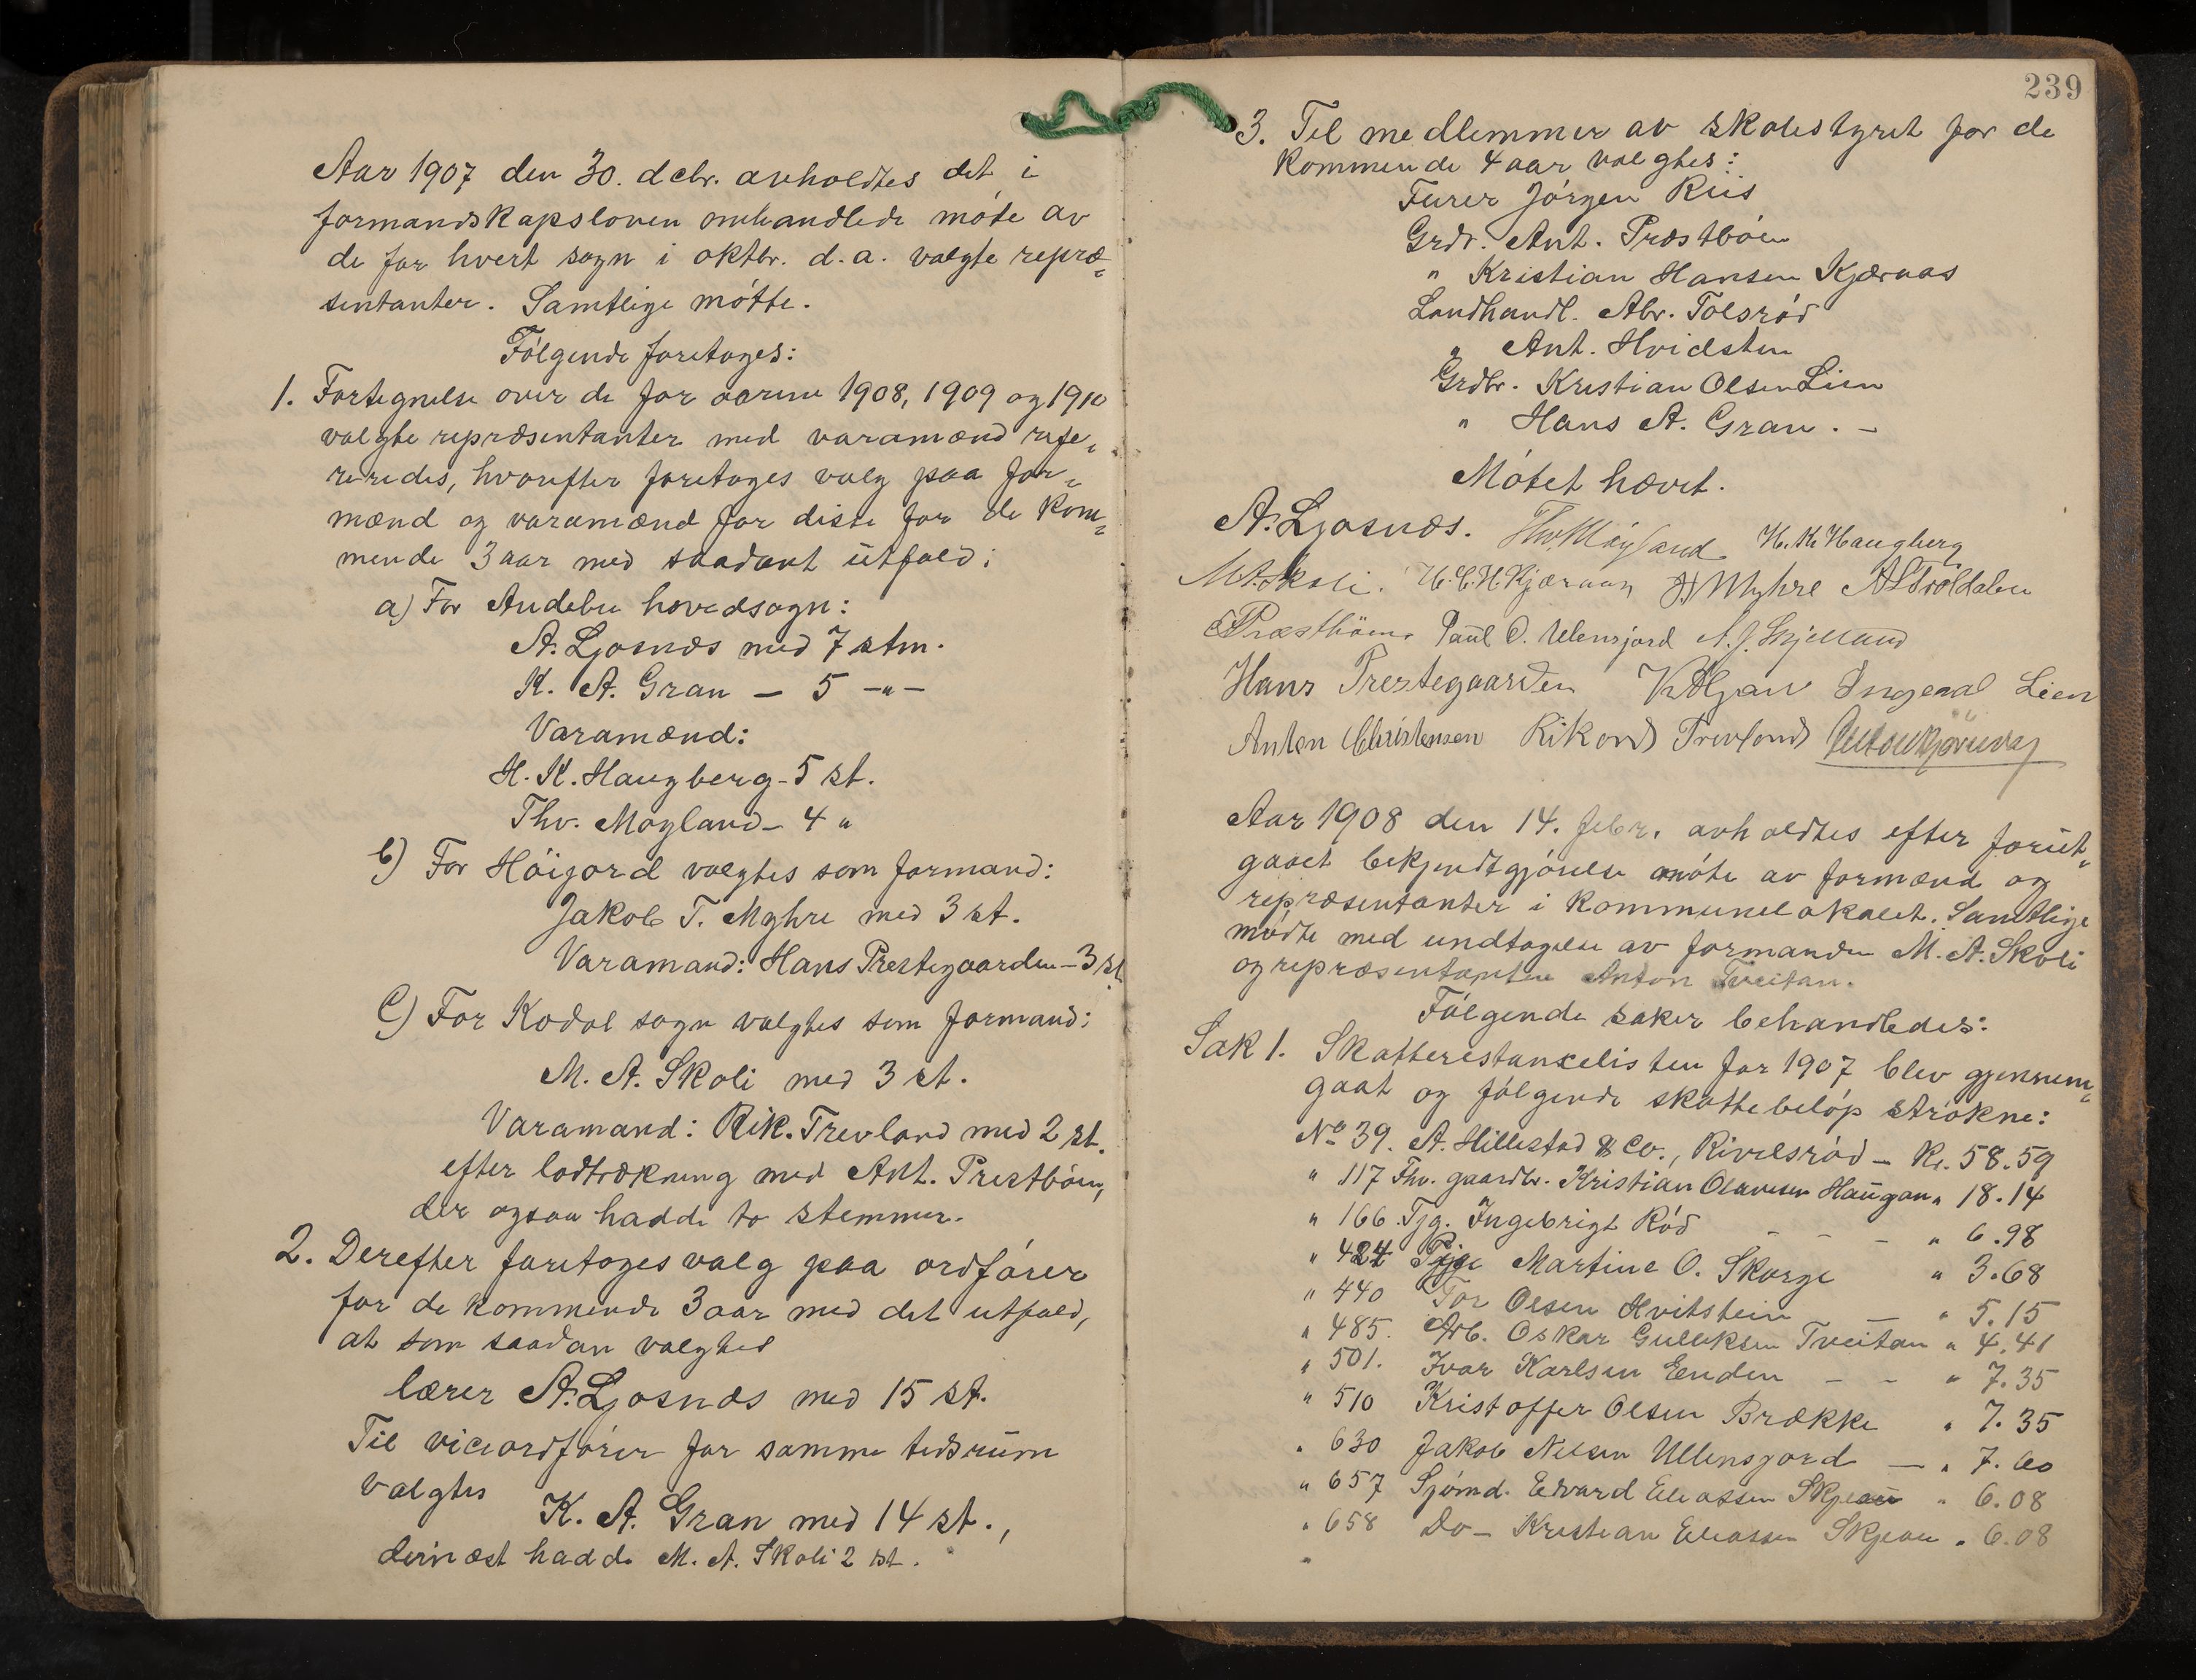 Aar 1907 den 30. debr. avholdtes det i
formandskapsloven omhandlede møte av
de for hvert sogn i oktbr. d. a. valgte repræ-
sentanter. Samtlige møtte.
Følgende foretoges:
1. Fortegnelse over de for aarene 1908, 1909 og 1910
valgte repræsentanter med varamænd refe-
reredes, hvorefter foretoges valg paa for-
mænd og varamænd for disse for de kom-
mende 3 aar med saadant utfald:
a) For Andebu hovedsogn:
A. Ljosnæs med 7 stm.
K. A. Gran — 5 -"-
Varamænd:
H. K. Haugberg - 5 st.
Thv. Møyland - 4 "
b) For Høijord valgtes som formand:
Jakob T. Myhre med 3 st.
Varamand: Hans Prestegaarden - 3 st.
C) For Kodal sogn valgtes som formand:
M. A. Skoli med 3 st.
Varamand: Rik. Trevland med 2 st.
efter lodtrækning med Ant. Prestbøen,
der ogsaa hadde to stemmer.
2. Derefter foretoges valg paa ordfører
for de kommende 3 aar med det utfald,
at som saadan valgtes
lærer A. Ljosnæs med 15 st.
Til viceordfører for samme tidsrum
valgtes
K. A. Gran med 14 st.,
dernæst hadde M. A. Skoli 2 st.
239
3. Til medlemmer av skolestyret for de
kommende 4 aar valgtes:
Furer Jørgen Riis
Grdr. Ant. Præstbøen
" Kristian Hansen Kjæraas
Landhandl. Abr. Tolsrød
" Ant. Hvidsten
Grdbr. Kristian Olsen Lien
" Hans A. Gran. -
Møtet hævet.
A. Ljosnæs. Thv. Møyland H. K. Haugberg
M A Skoli. H. C. H. Kjæraas J T Myhre A L Trolldalen
A Præstbøen Paul O. Ulensjord A. J. Skjelland
Hans Prestegaarden K A Gran Ingevald Lien
Anton Christensen Rikard Trevland
Aar 1908 den 14. febr. avholdtes efter forut-
gaaet bekjendtgjørelse møte av formænd og
repræsentanter i kommunelokalet. Samtlige
mødte med undtagelse av formanden M. A. Skoli
og repræsentanten Anton Tveitan.
Følgende saker behandledes:
Sak 1. Skatterestanselisten for 1907 blev gjennem-
gaat og følgende skattebeløp strøkne:
No 39. A. Hillestad & Co., Rivelsrød - Kr. 58.59
" 117 Fhv. gaardbr. Kristian Olavesen Haugan " 18.14
" 166. Tjg. Ingebrigt Rød - - - " 6.98
" 424 Pige Martine O. Skorge " 3.68
" 440 Tor Olsen Hvitstein — " 5.15
" 485. Arb. Oskar Gulliksen Tveitan " 4.41
" 501. Ivar Karlsen Enden - - " 7.35
" 510 Kristoffer Olsen Brække " 7.35
" 630 Jakob Nilsen Ullensjord — " 7.60
" 657 Sjømd. Edvard Eliassen Skjeau " 6.08
" 658 Do - Kristian Eliassen Skjeau " 6.08
"